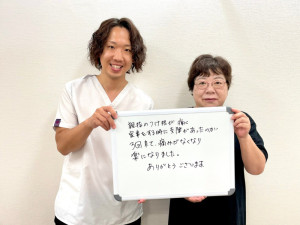 親指のつけ根が痛く
家事をする時に支障があったのが
3回目で、痛みがなくなり
楽になりました。
ありがとうございます